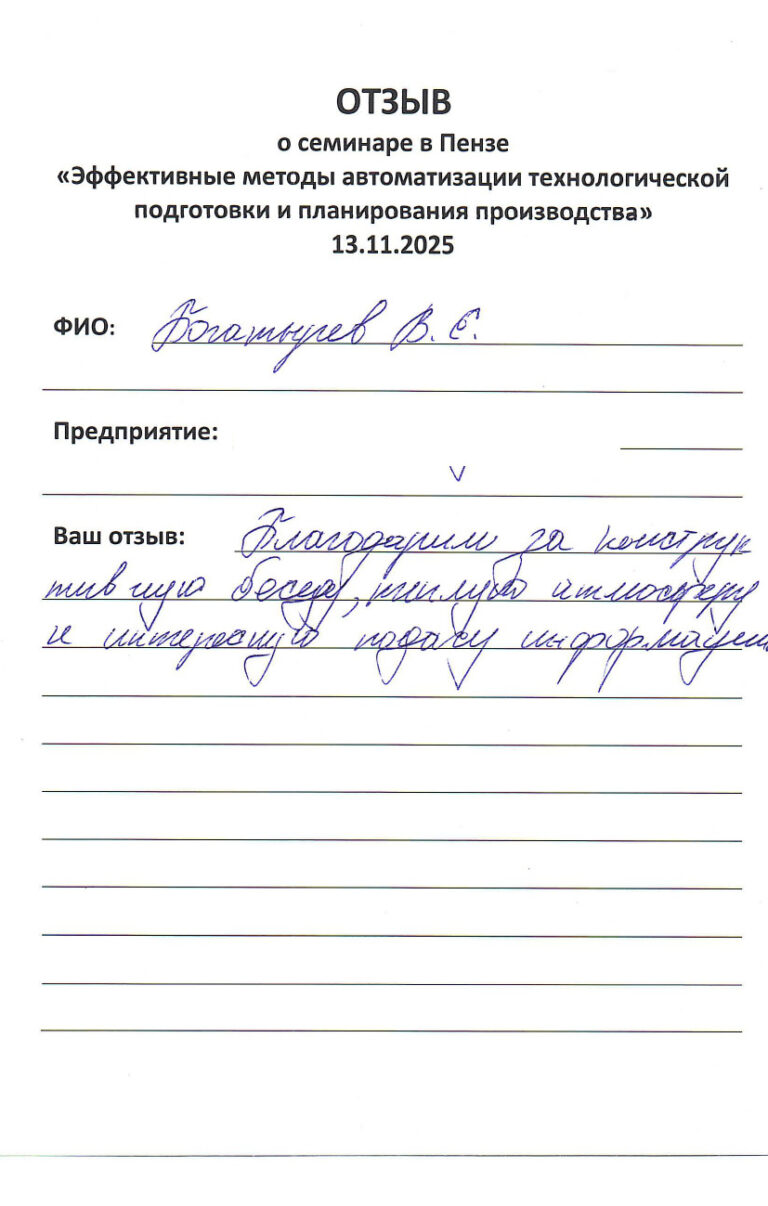 ОТЗЫВ
о семинаре в Пензе
«Эффективные методы автоматизации технологической
подготовки и планирования производства»
13.11.2025
ФИО: Богатырев В. Е.
Предприятие:
Ваш отзыв: Благодарим за конструк
тивную беседу, теплую атмосферу
и интересную подачу информации